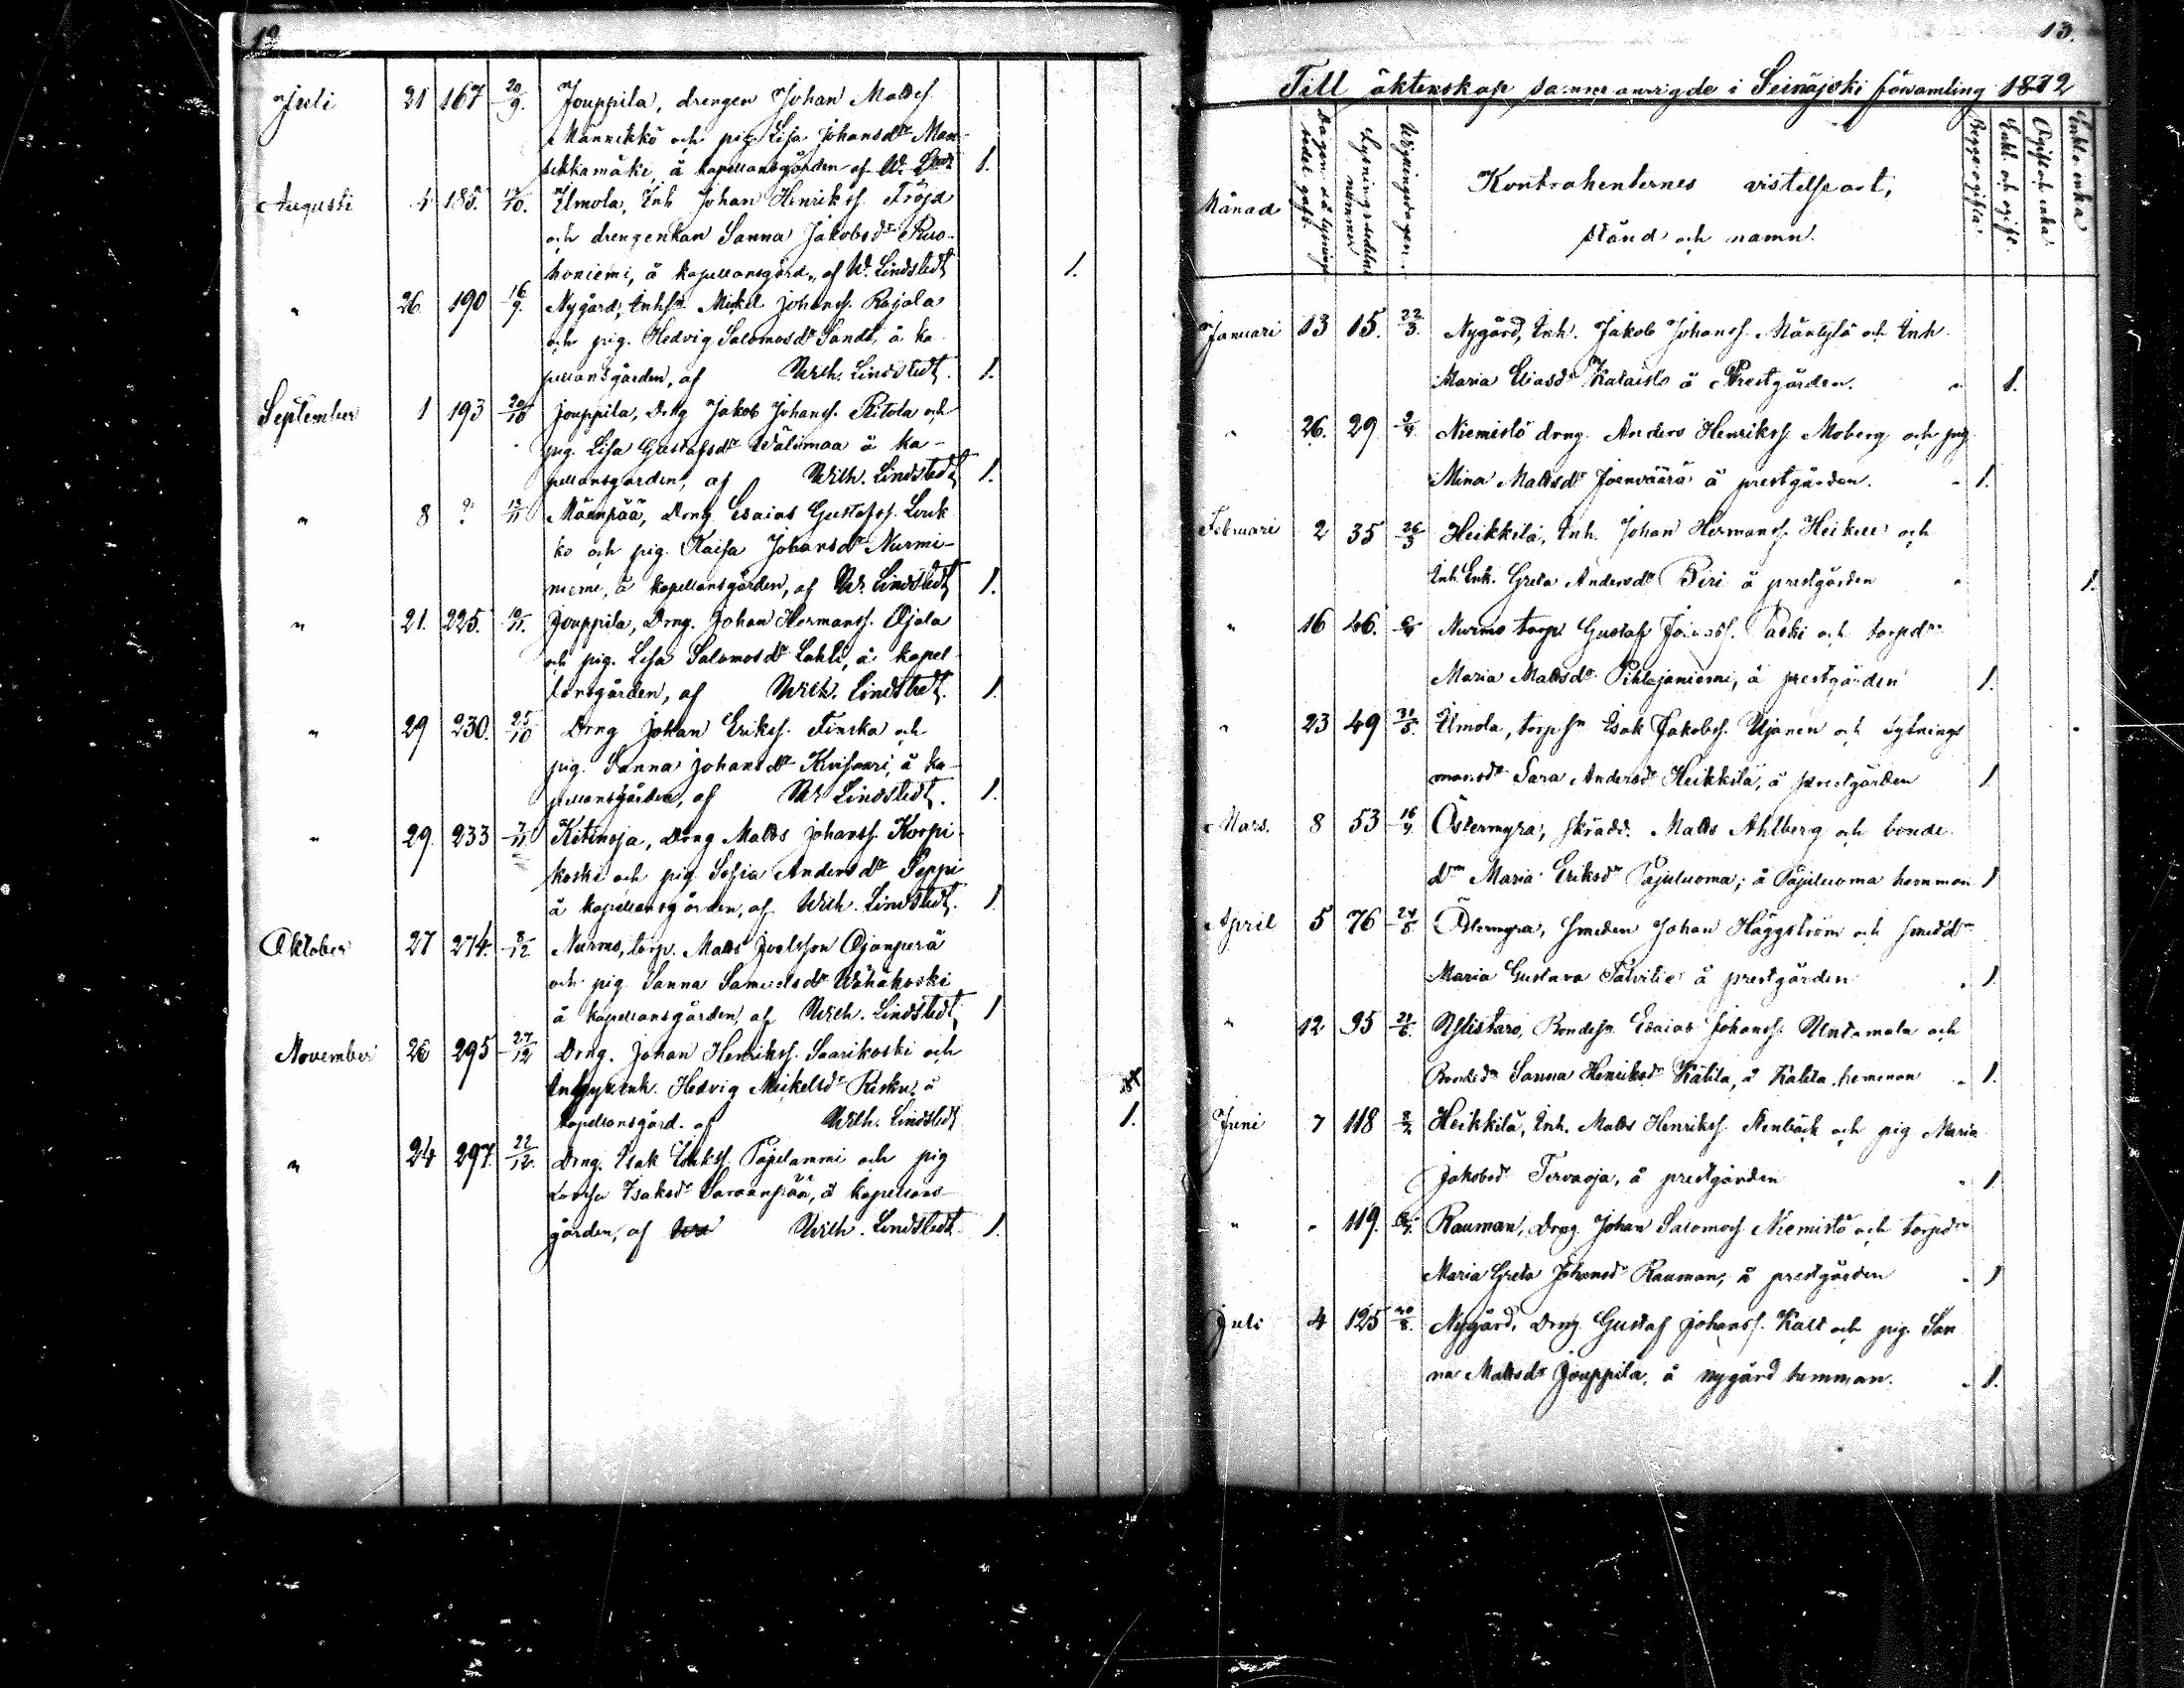 12
Juli 21 167 20/9. Jouppila, drengen Johan Mattss.
Männikkö och pig. Lisa Johansdr Man-
sikkamäki, å kapellansgården af W. Lindt 1.
Augusti 4 185. /10. Ilmola, Inh Johan Henrikss. Fröjd
och drengenkan Sanna Jakobsdr Ruo-
honiemi, å kapellansgård., af W. Lindstedt 1.
" 26 190 16/9. Nygård, Inhsn Mickel Johanss. Rajala
och pig. Hedvig Salomosdr Sandt, å ka-
pellansgården, af Wilh. Lindstedt. 1.
September 1 193 20/10 Jouppila, Drng Jakob Johanss. Ritola och
pig. Lisa Gustafsdr Wälimaa å ka-
pellansgården, af Wilh. Lindstedt 1.
" 8 ? /11 Mäenpää, Drng Esaias Gustafss. Louk
ko och pig. Kaisa Johansdr Nurmi-
niemi, å kapellansgården, af W. Lindstedt 1.
" 21. 225. /11. Jouppila, Drng. Johan Hermanss. Ojala
och pig. Lisa Salomosdr Lahti, å kapel-
lansgården, af Wilh. Lindstedt. 1.
" 29 230. 25/10 Drng Johan Erikss. Finska och
pig. Sanna Johansdr Kivisaari, å ka-
pellansgården, af W. Lindstedt. 1.
" 29. 233 7/11 Kitinoja, Drng Matts Johanss. Korpi-
koski och pig. Sofia Andersdr Seppi
å kapellansgården, af Wilh. Lindstedt. 1.
Oktober 27 274. 8/12 Nurmo, torp. Matts Joelsson Ojanperä
och pig. Sanna Samuelsdr Wähäkoski
å kapellansgården, af Wilh. Lindstedt 1
November 26 295 27/12 Drng. Johan Henrikss. Saarikoski och
Inhysenk. Hedvig Mickelsdr Risku, å
kapellansgård. af Wilh. Lindstedt 1.
" 24 297. 22/12. Drng. Isak Erikss. Pajulammi och pig
Lovisa Isaksdr Savaanpää, å kapellans-
gården, af Wilh. Lindstedt 1.
13.
Till äktenskap sammanvigde i Seinäjoki församling 1872
Månad
Dagen då lysningssedel gafs.
Lysningssedelns nummer
Wigningsdagen.
Kontrahenternes vistelseort,
stånd och namn.
Begge ogifta
Enkl. och ogift.
Ogift och enka
Enkl. o enka
Januari 13 15. 22/3. Nygård, Inh. Jakob Johanss. Mäntylä och Inh
Maria Eliasdr Kataisto å Prestgården. " 1.
" 26. 29 2/4. Niemistö drng. Anders Henrikss. Moberg och pig
Mina Mattsdr Joenväärä å prestgården. " 1.
Februari 2 35 26/3 Heikkilä, Inh. Johan Hermanss. Heikell och
Inh. Enk. Greta Andersdr Piri å prestgården " 1.
" 16 46. Nurmo torp. Gustaf Paski och torpdr
Maria Mattsdr Pihlajaniemi, å prestgården 1.
" 23 49 31/5. Ilmola, torpsn Isak Jakobss. Ujanen och sytnings
mansdr Sara Andersdr Heikkilä, å prestgården 1
Mars. 8 53 16/4 Östermyra, skrädd. Matts Ahlberg och bonde
drn Maria Eriksdr Pajuluoma, å Pajuluoma hemman 1
April 5 76 24/5 Östermyra, Smeden Johan Häggström och smeddr
Maria Gustava Talvitie å prestgården " 1
" 12 95 21/6. Ylistaro, Bondesn Esaias Johanss. Untamala och
Bondedr Sanna Henriksdr Katila, å Katila hemman " 1.
Juni 7 118 Heikkilä, Inh. Matts Henrikss. Stenbäck och pig Maria
Jakobsdr Tervaoja, å prestgården " 1
" " 119. Rauman, Drng Johan Salomoss Niemistö och torpdr
Maria Greta Johansdr Rauman, å prestgården " 1
Juli 4 125 Nygård, Drng Gustaf Johanss. Kalt och pig. San
na Mattsdr Jouppila, å nygård hemman. " 1.